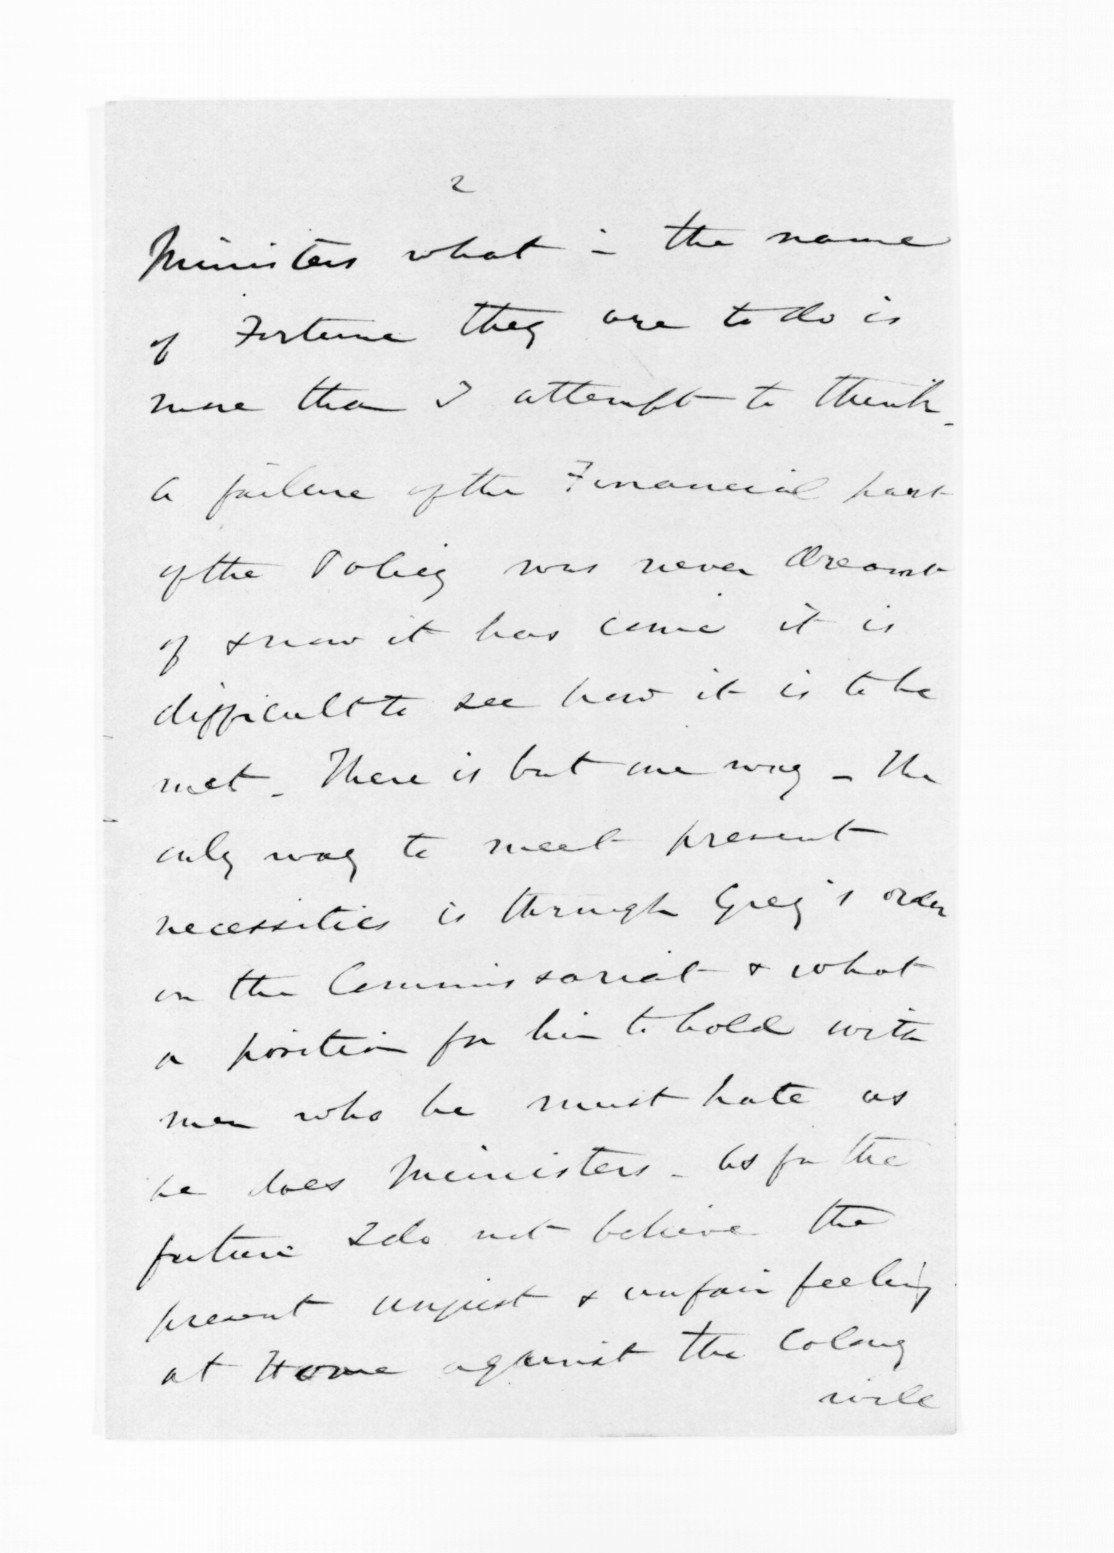 2
Ministers what in the name
of Fortune they are to do is
more than I attempt to think.
A failure of the Financial part
of the Policy was never dreamt
of & now it has come it is
difficult to see how it is to be
met - There is but one way - the
only way to meet present
necessities is through Grey's order
on the Commissariat & what
a position for him to hold with
men who he must hate as
he does Ministers - As for the
future I do not believe the
present unjust & unfair feeling
at Home against the Colony
will